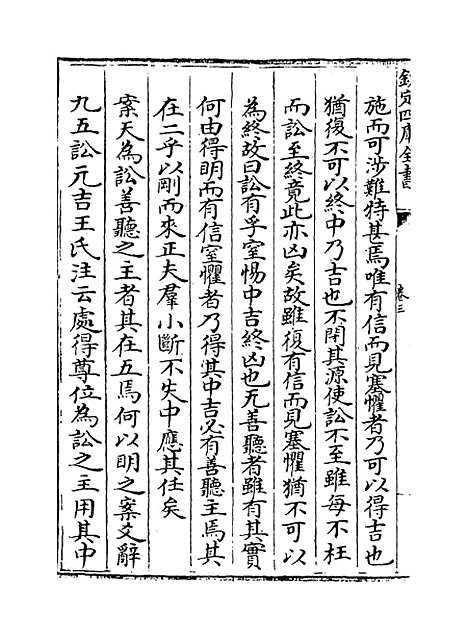 欽定四庫全書
卷三
施而可涉難特甚焉唯有信而見塞懼者乃可以得吉也
猶復不可以終中乃吉也不閉其源使訟不至雖每不枉
而訟至終竟此亦凶矣故雖復有信而見塞懼猶不可以
為終故曰訟有孚窒惕中吉終凶也无善聽者雖有其實
何由得明而有信窒懼者乃得其中吉必有善聽主焉其
在二乎以剛而來正夫羣小斷不失中應其任矣
案天為訟善聽之主者其在五焉何以明之案文辭
九五訟元吉王氏注云處得尊位為訟之主用其中